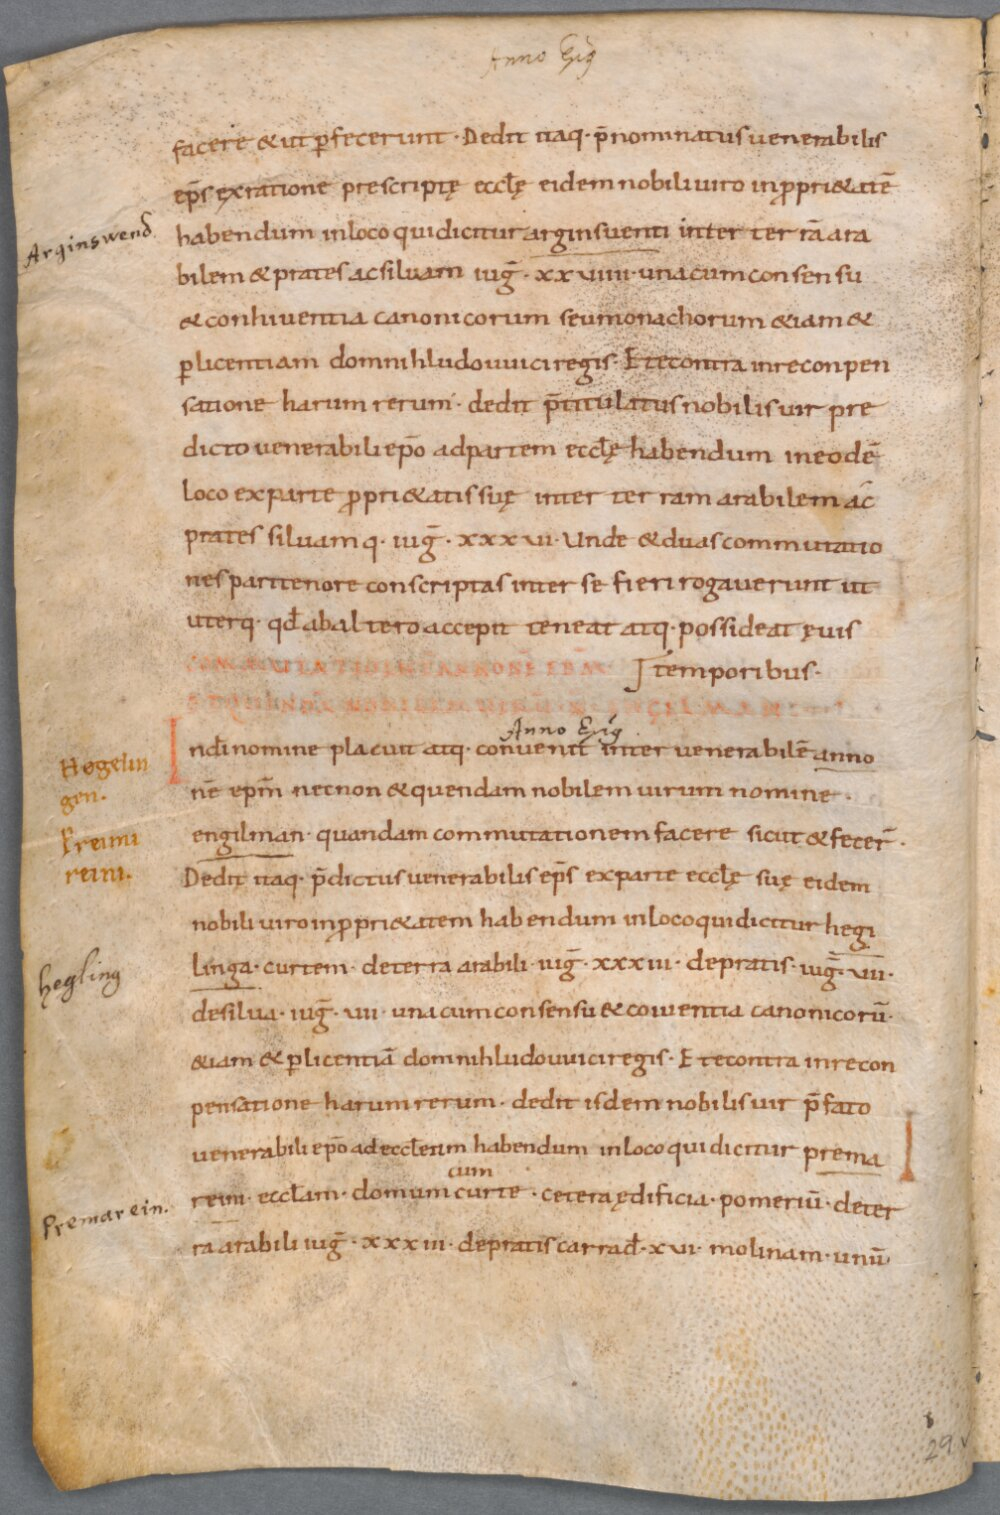 Anno Epō
facere & ut p̄fecerunt · Dedit itaq· p̄nominatus venerabilis
ep̄s ex ratione prescriptę eccłę eidem nobili viro in p̄pri&atē
Arginswend
habendum in loco qui dicitur arginsuenti inter terrā ara
bilem & prates ac siluam iuḡ · xxviiii · una cum consensu
& conhiventia canonicorum seu monachorum &iam &
p̄ licentiam domni hludouuici regis · Et e contra in reconpen
satione harum rerum · dedit p̄titulatus nobilis vir pre
dicto venerabili ep̄o ad partem eccłę habendum in eodē
loco ex parte p̄pri&atis suę inter terram arabilem ac
prates siluamq· iuḡ · xxxvi · Unde & duas commutatio
nes pari tenore conscriptas inter se fieri rogaverunt ut
uterq· qđ ab altero accepit teneat atq· possideat ęvis
temporibus ·
Anno Epō
In dī nomine placuit atq· convenit inter venerabilē anno
Hogelin
gen.
nē ep̄m necnon & quendam nobilem virum nomine ·
Preimi
reini.
engilman · quandam commutationem facere sicut & fecer̄ ·
Dedit itaq· p̄dictus venerabilis ep̄s ex parte eccłę suę eidem
nobili viro in p̄pri&atem habendum in loco qui dicitur hegi
hegling
linga · curtem · de terra arabili · iuḡ · xxxiii · de pratis · iuḡ · viii ·
de silua · iuḡ · viii · una cum consensu & coiventia canonicorū ·
&iam & p̄ licentiā domni hludouuici regis · Et e contra in recon
pensatione harum rerum · dedit isdem nobilis vir p̄fato
venerabili ep̄o ad eccłeam habendum in loco qui dicitur prema
cum
Premarein.
reini · eccłam · domum curte · cetera ędificia · pomeriū · de ter
ra arabili iuḡ · xxxiii · de pratis carrađ · xvi · molinam · unū ·
29v